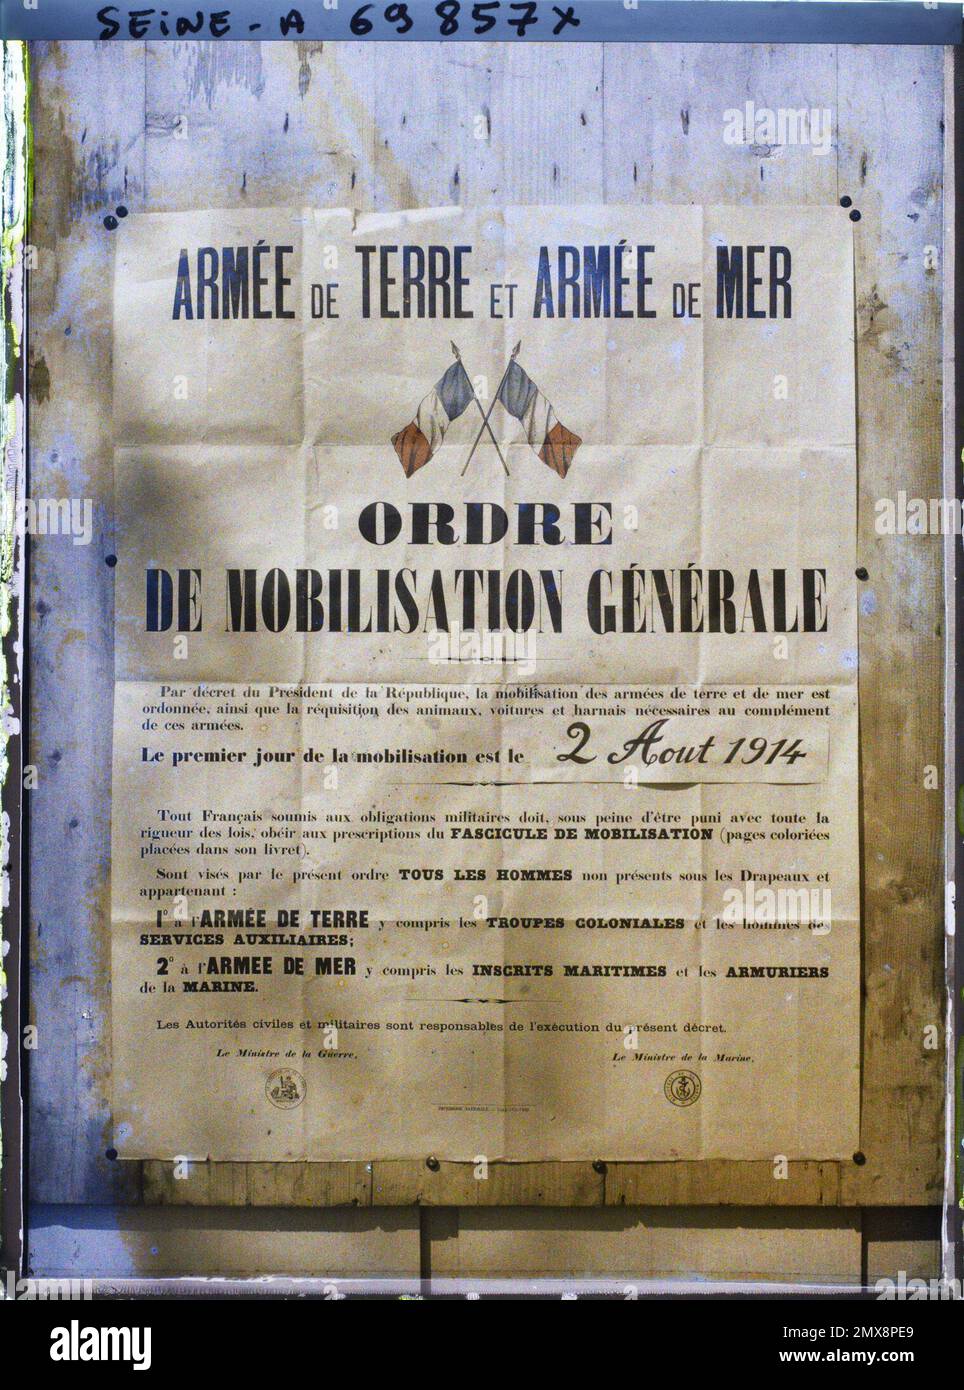 SEINE - A 69 857X
ARMÉE DE TERRE ET ARMÉE DE MER
ORDRE
DE MOBILISATION GÉNÉRALE
Par décret du Président de la République, la mobilisation des armées de terre et de mer est
ordonnée, ainsi que la réquisition des animaux, voitures et harnais nécessaires au complément
de ces armées.
Le premier jour de la mobilisation est le 2 Aout 1914
Tout Français soumis aux obligations militaires doit, sous peine d'être puni avec toute la
rigueur des lois, obéir aux prescriptions du FASCICULE DE MOBILISATION (pages coloriées
placées dans son livret).
Sont visés par le présent ordre TOUS LES HOMMES non présents sous les Drapeaux et
appartenant :
1° à l'ARMÉE DE TERRE y compris les TROUPES COLONIALES et les hommes des
SERVICES AUXILIAIRES;
2° à l'ARMÉE DE MER y compris les INSCRITS MARITIMES et les ARMURIERS
de la MARINE.
Les Autorités civiles et militaires sont responsables de l'exécution du présent décret.
Le Ministre de la Guerre, Le Ministre de la Marine,
IMPRIMERIE NATIONALE
alamy
Image ID: 2MX8PE9
www.alamy.com